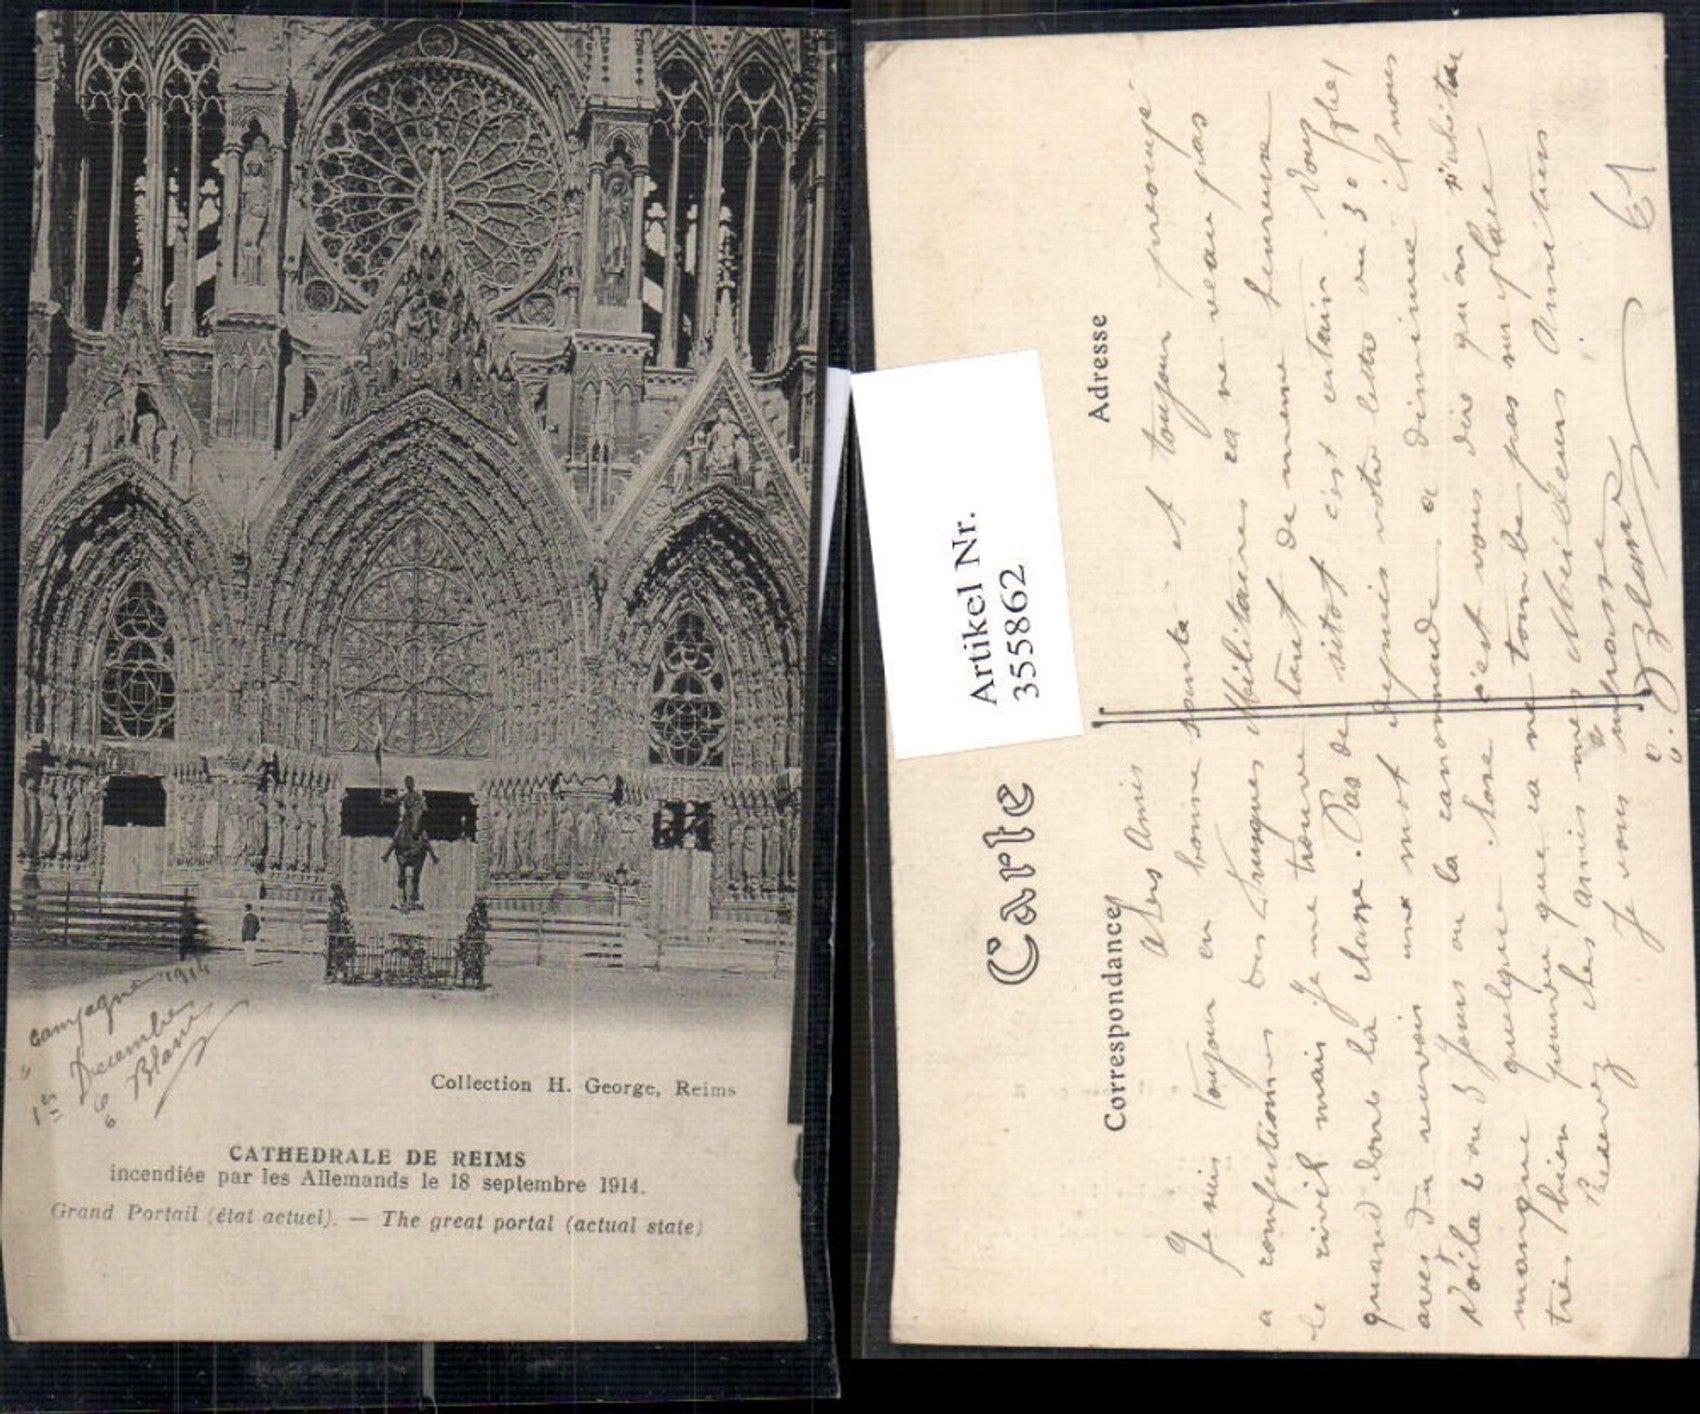 "Campagne 1914
1er Decembre
Collection H. George, Reims
CATHEDRALE DE REIMS
incendiée par les Allemands le 18 septembre 1914.
Grand Portail (état actuel). — The great portal (actual state)
Artikel Nr.
355862
Carte
Correspondance
Adresse
Chers Amis
Je suis toujour en bonne santé et toujour preocupé
a confectionner des Linques Militaires ca ne veau pas
le civil mais je me trouve tant de meme heureuse
quand dont la classe. Pas de sitot c'est certain. Vous
avez du recevoir une mot depuis votre lettre du 30
Voila 2 ou 3 Jours ou la canonnade a diminuée il nous
manque quelque chose c'est vous dire qu'on s'abitue
très bien pourvu que ca ne tombe pas sur place
Recevez chers amis mes Meilleurs Amitiers
Je vous embrasse